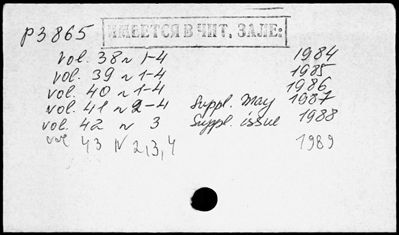 р3865 ИМЕЕТСЯ В ЧИТ. ЗАЛЕ:
vol. 38 N 1-4 1984
vol. 39 N 1-4 1985
vol. 40 N 1-4 1986
vol. 41 N 2-4 Suppl. May 1987
vol. 42 N 3 Suppl. issue 1988
vol 43 N 2,3,4 1989